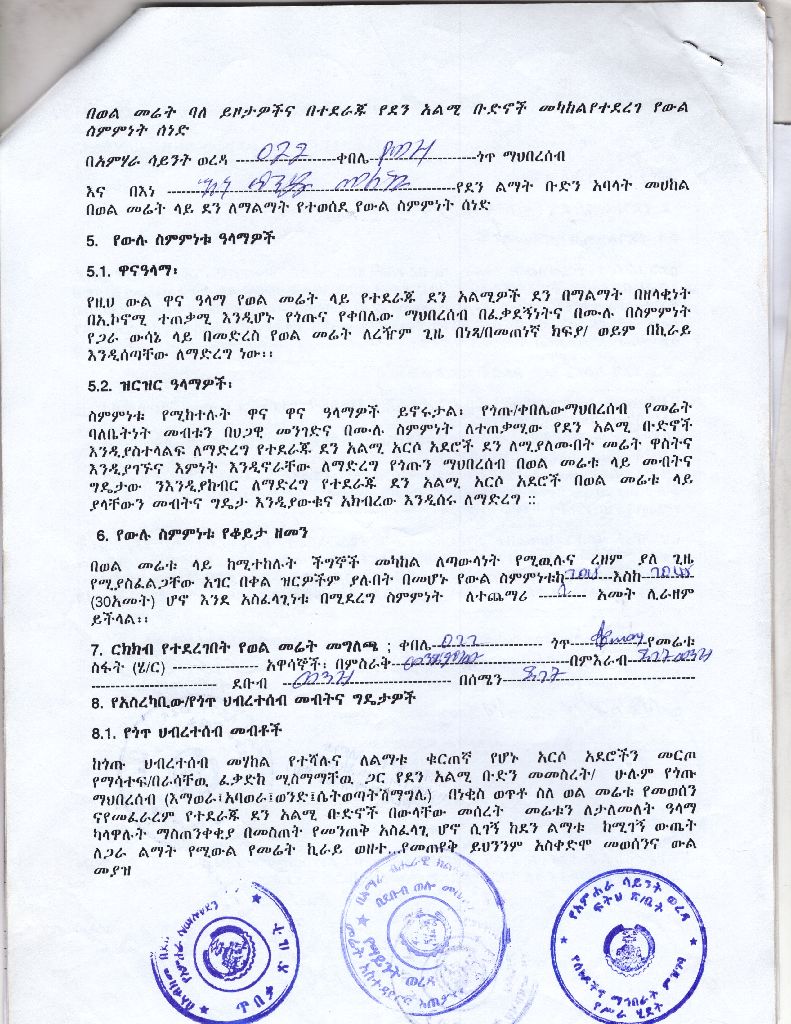 በወል መሬት ባለ ይዞታዎችና በተደራጁ የደን አልሚ ቡድኖች መካከልየተደረገ የውል
ስምምነት ሰነድ
በአምሃራ ሳይንት ወረዳ 022 ቀበሌ ጎጥ ማህበረሰብ
እና በእነ የደን ልማት ቡድን አባላት መሀከል
በወል መሬት ላይ ደን ለማልማት የተወሰደ የውል ስምምነት ሰነድ
5. የውሉ ስምምነቱ ዓላማዎች
5.1. ዋናዓላማ፡
የዚህ ውል ዋና ዓላማ የወል መሬት ላይ የተደራጁ ደን አልሚዎች ደን በማልማት በዘላቂነት
በኢኮኖሚ ተጠቃሚ እንዲሆኑ የጎጡና የቀበሌው ማህበረሰብ በፈቃደኝነትና በሙሉ በስምምነት
የጋራ ውሳኔ ላይ በመድረስ የወል መሬት ለረዥም ጊዜ በነጻ/በመጠነኛ ክፍያ/ ወይም በኪራይ
እንዲሰጣቸው ለማድረግ ነው፡፡
5.2. ዝርዝር ዓላማዎች፡
ስምምነቱ የሚከተሉት ዋና ዋና ዓላማዎች ይኖሩታል፡ የጎጡ/ቀበሌውማህበረሰብ የመሬት
ባለቤትነት መብቱን በህጋዊ መንገድና በሙሉ ስምምነት ለተጠቃሚው የደን አልሚ ቡድኖች
እንዲያስተላልፍ ለማድረግ የተደራጁ ደን አልሚ አርሶ አደሮች ደን ለሚያለሙበት መሬት ዋስትና
እንዲያገኙና እምነት እንዲኖራቸው ለማድረግ የጎጡን ማህበረሰብ በወል መሬቱ ላይ መብትና
ግዴታው ንእንዲያከብር ለማድረግ የተደራጁ ደን አልሚ አርሶ አደሮች በወል መሬቱ ላይ
ያላቸውን መብትና ግዴታ እንዲያውቁና አክብረው እንዲሰሩ ለማድረግ ::
6. የውሉ ስምምነቱ የቆይታ ዘመን
በወል መሬቱ ላይ ከሚተከሉት ችግኞች መካከል ለጣውላነት የሚዉሉና ረዘም ያለ ጊዜ
የሚያስፈልጋቸው አገር በቀል ዝርዎችም ያሉበት በመሆኑ የውል ስምምነቱከ እስከ
(30አመት) ሆኖ እንደ አስፈላጊነቱ በሚደረግ ስምምነት ለተጨማሪ አመት ሊራዘም
ይችላል፡፡
7. ርክክብ የተደረገበት የወል መሬት መግለጫ ; ቀበሌ 022 ጎጥ የመሬቱ
ስፋት (ሄ/ር) አዋሳኞች፡ በምስራቅ በምእራብ
ደቡብ በሰሜን
8. የአስረካቢው/የጎጥ ህብረተሰብ መብትና ግዴታዎች
8.1. የጎጥ ህብረተሰብ መብቶች
ከጎጡ ህብረተሰብ መሃከል የተሻሉና ለልማቱ ቁርጠኛ የሆኑ አርሶ አደሮችን መርጦ
የማሳተፍ/በራሳቸዉ ፈቃድከ ሚስማማቸዉ ጋር የደን አልሚ ቡድን መመስረት/ ሁሉም የጎጡ
ማህበረሰብ (እማወራ፤አባወራ፤ወንድ፤ሴትወጣትሽማግሌ) በነቂስ ወጥቶ ስለ ወል መሬቱ የመወሰን
ናየመፈራረም የተደራጁ ደን አልሚ ቡድኖች በውላቸው መሰረት መሬቱን ለታለመለት ዓላማ
ካላዋሉት ማስጠንቀቂያ በመስጠት የመንጠቅ አስፈላጊ ሆኖ ሲገኝ ከደን ልማቱ ከሚገኝ ውጤት
ለጋራ ልማት የሚውል የመሬት ኪራይ ወዘተ...የመጠየቅ ይህንንም አስቀድሞ መወሰንና ውል
መያዝ
የአምሐራ ሳይንት ወረዳ
ፍትህ ጽ/ቤት
የሰነዶችና ማኅበራት ምዝገባ
የሥራ ሂደት
በደቡብ ወሎ